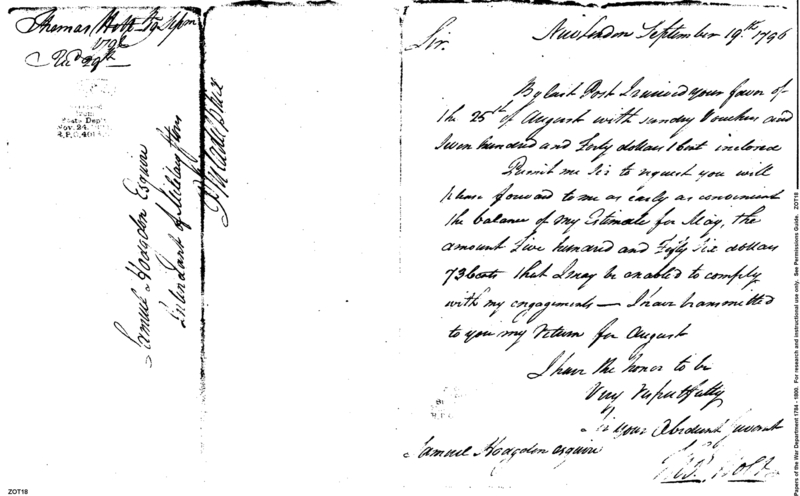 Thomas Holt 19 Sepm
1796
Recd 29th
from
State Dept
Nov. 24,
R.P.C, 401
Samuel Hodgdon Esquire
Intendant of Military Stores
Philadelphia
New London September 19th 1796
Sir.
By last Post I received your favor of
the 25th of August with sunday Vouchers and
Seven hundred and Forty dollars 1 Cent inclosed
Permit me Sir to request you will
please forward to me as early as convenient
the balance of my Estimate for May, the
amount Five hundred and Fifty Six dollars
73 Cents that I may be enabled to comply
with my engagements — I have transmitted
to you my return for August
I have the honor to be
Very respectfully
Sir your Obedient Servant
Samuel Hodgdon esquire
Holt
Papers of the War Department 1784 - 1800. For research and instructional use only. See Permissions Guide. ZOT18
ZOT18